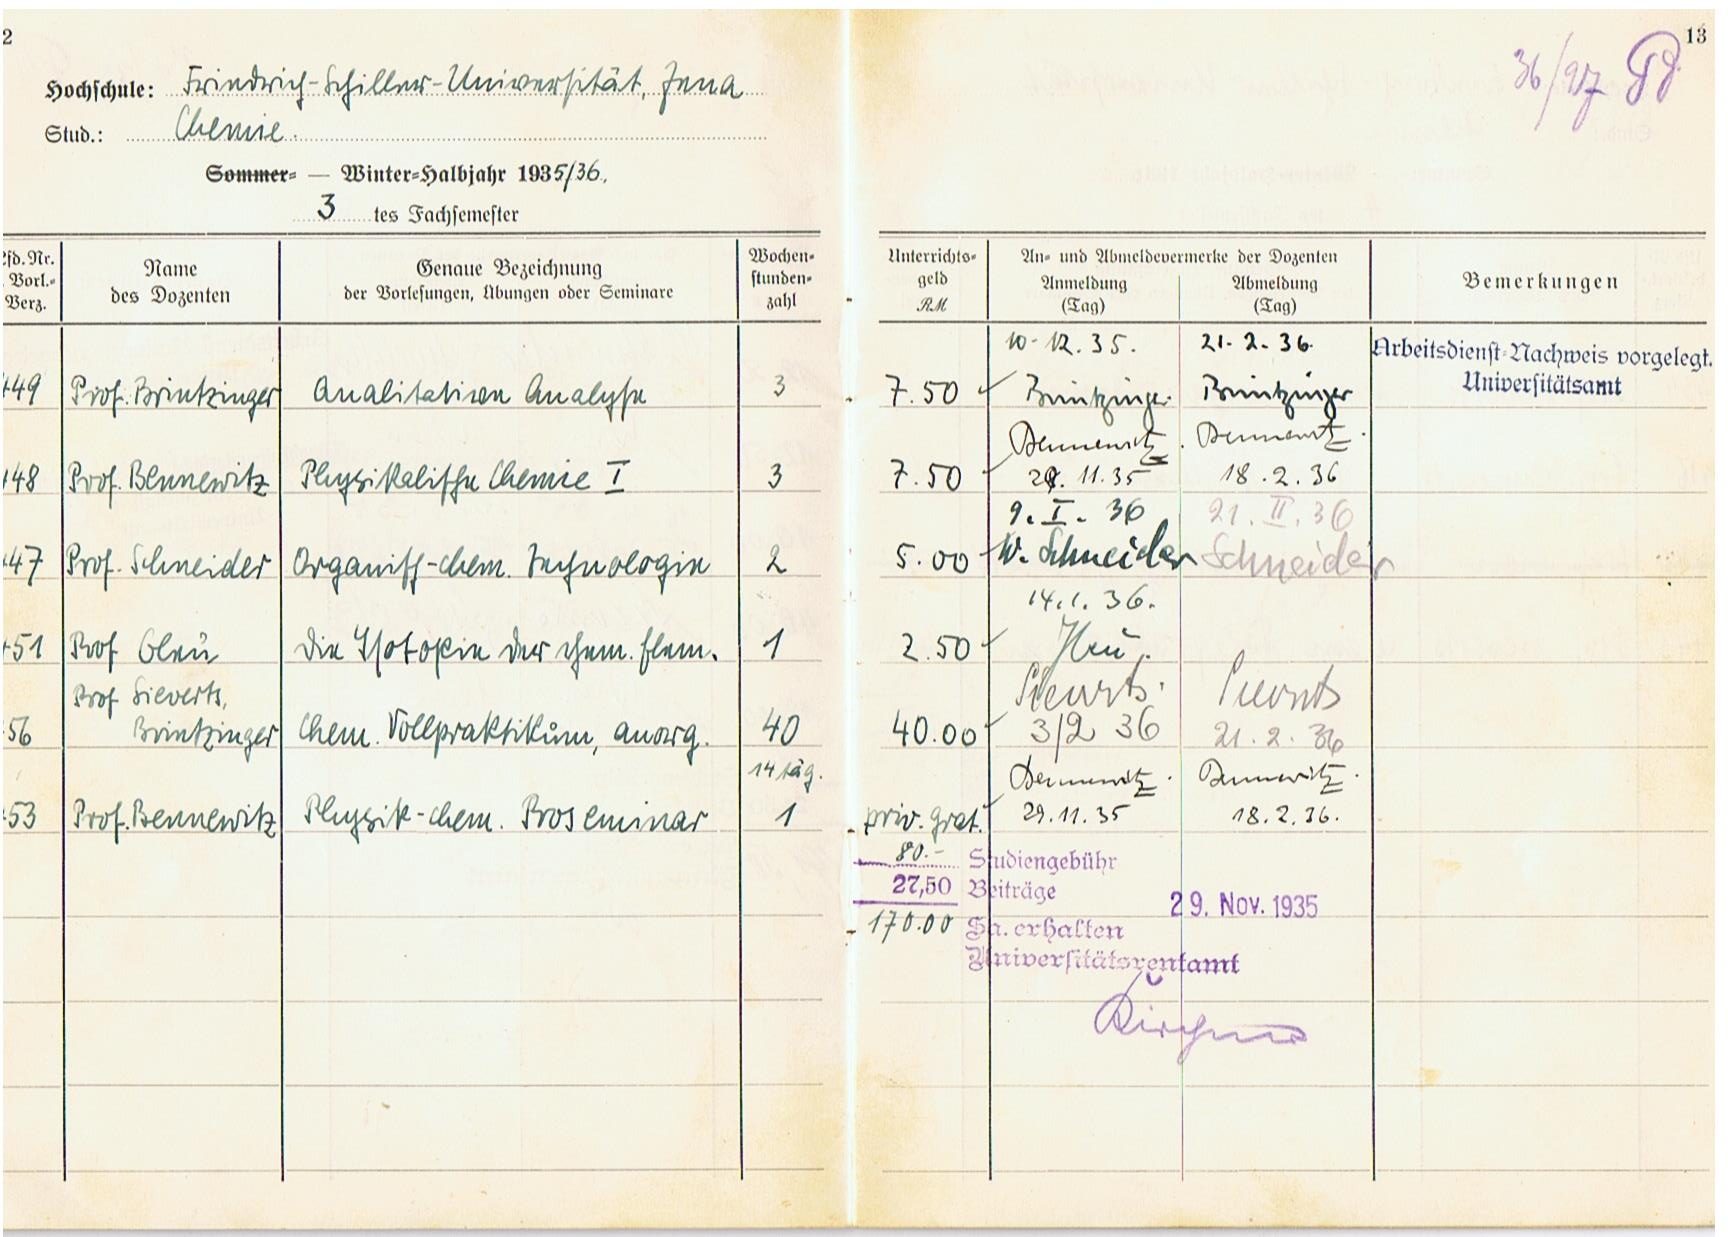 2
Hochschule: Friedrich-Schiller-Universität, Jena
Stud.: Chemie.
Sommer- — Winter-Halbjahr 1935/36.
3 tes Fachsemester
Lfd. Nr. Vorl.-Verz.
Name des Dozenten
Genaue Bezeichnung der Vorlesungen, Übungen oder Seminare
Wochen-stunden-zahl
449 Prof. Brintzinger Qualitative Analyse 3
448 Prof. Bennewitz Physikalische Chemie I 3
447 Prof. Schneider Organisch-chem. Technologie 2
451 Prof Gleu Die Isotopie der chem. Elem. 1
56 Prof Sieverts, Brintzinger Chem. Vollpraktikum, anorg. 40
14 täg.
453 Prof. Bennewitz Physik-chem. Proseminar 1
13
36/917
Unterrichts-geld RM
An- und Abmeldevermerke der Dozenten
Anmeldung (Tag)
Abmeldung (Tag)
Bemerkungen
10.12.35. 21.2.36.
7.50 Brintzinger Brintzinger
Arbeitsdienst-Nachweis vorgelegt.
Universitätsamt
Bennewitz. Bennewitz.
7.50 29.11.35 18.2.36
9. I. 36 21. II. 36
5.00 W. Schneider Schneider
14.1.36.
2.50 Gleu.
Sieverts. Sieverts
40.00 3/2 36 21.2.36
Bennewitz. Bennewitz.
priv. grat. 29.11.35 18.2.36.
80.- Studiengebühr
27,50 Beiträge
29. Nov. 1935
170.00 Sa. erhalten
Universitätsrentamt